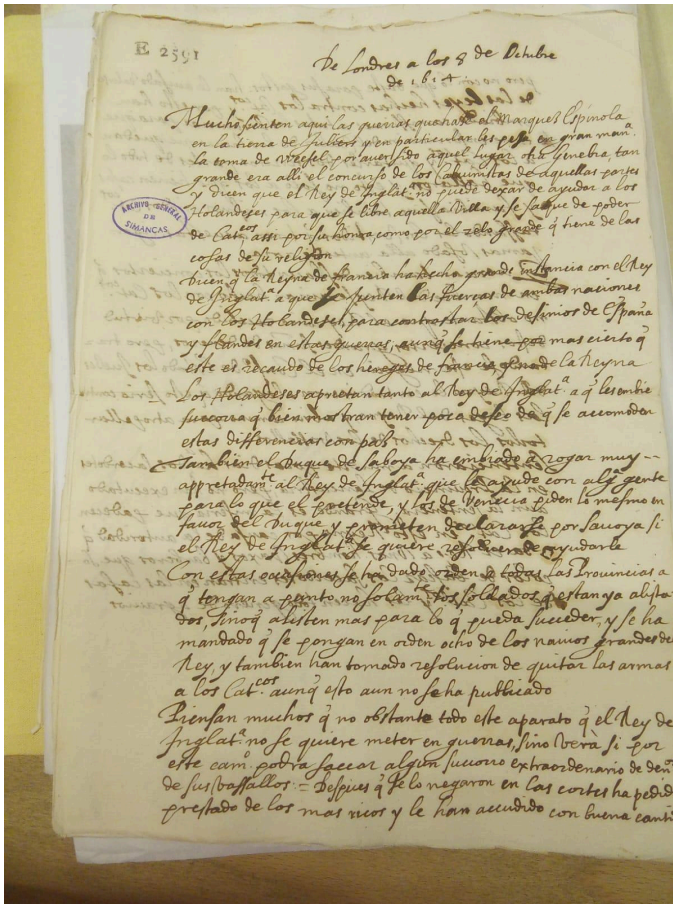 E 2591
De Londres a los 8 de Octubre
de 1614
Mucho sienten aqui las guerras que haze el Marques Espinola
en la tierra de Juliers y en particular les pesa en gran man.ª
la toma de Wesel por aver sido aquel lugar otra Ginebra, tan
grande era alli el concurso de los Calvinistas de aquellas partes
y dicen que el Rey de Inglat.ª no puede dexar de ayudar a los
Holandeses para que se libre aquella villa y se saque de poder
ARCHIVO GENERAL
DE
SIMANCAS
de Cat.cos assi por su honra, como por el zelo grande q̃ tiene de las
cosas de su religion
Dicen q̃ la Reyna de francia ha hecho grande instancia con el Rey
de Inglat.ª a que se junten las fuerças de ambas naciones
con los Holandeses, para contrastar los desinios de España
y flandes en estas guerras, aunq̃ se tiene por mas cierto q̃
este es recaudo de los hereges de francia q̃ no de la Reyna
Los Holandeses aprietan tanto al Rey de Inglat.ª a q̃ les embie
succorro q̃ bien mostran tener poco deseo de q̃ se accomoden
estas differencias con paz
Tambien el Duque de Saboya ha embiado a rogar muy
appretadam.te al Rey de Inglat.ª que le ayude con alg.ª gente
para lo que el pretende, y los de Venecia piden lo mesmo en
favor del Duque, y prometen declararse por Savoya si
el Rey de Inglat.ª se quiere resolver de ayudarle
Con estas occasiones se han dado orden a todas las Provincias a
q̃ tengan a punto no solam.te los soldados q̃ estan ya alista
dos, sinoq̃ alisten mas para lo q̃ pueda succeder, y se ha
mandado q̃ se pongan en orden ocho de los navios grandes del
Rey, y tambien han tomado resolucion de quitar las armas
a los Cat.cos aunq̃ esto aun no se ha publicado
Piensan muchos q̃ no obstante todo este aparato q̃ el Rey de
Inglat.ª no se quiere meter en guerras, sino verà si por
este cam.º podra saccar algun succorro extraordenario de den.º
de sus vassallos = Despues q̃ se lo negaron en las cortes ha pedid
prestado de los mas ricos y le han accudido con buena canti